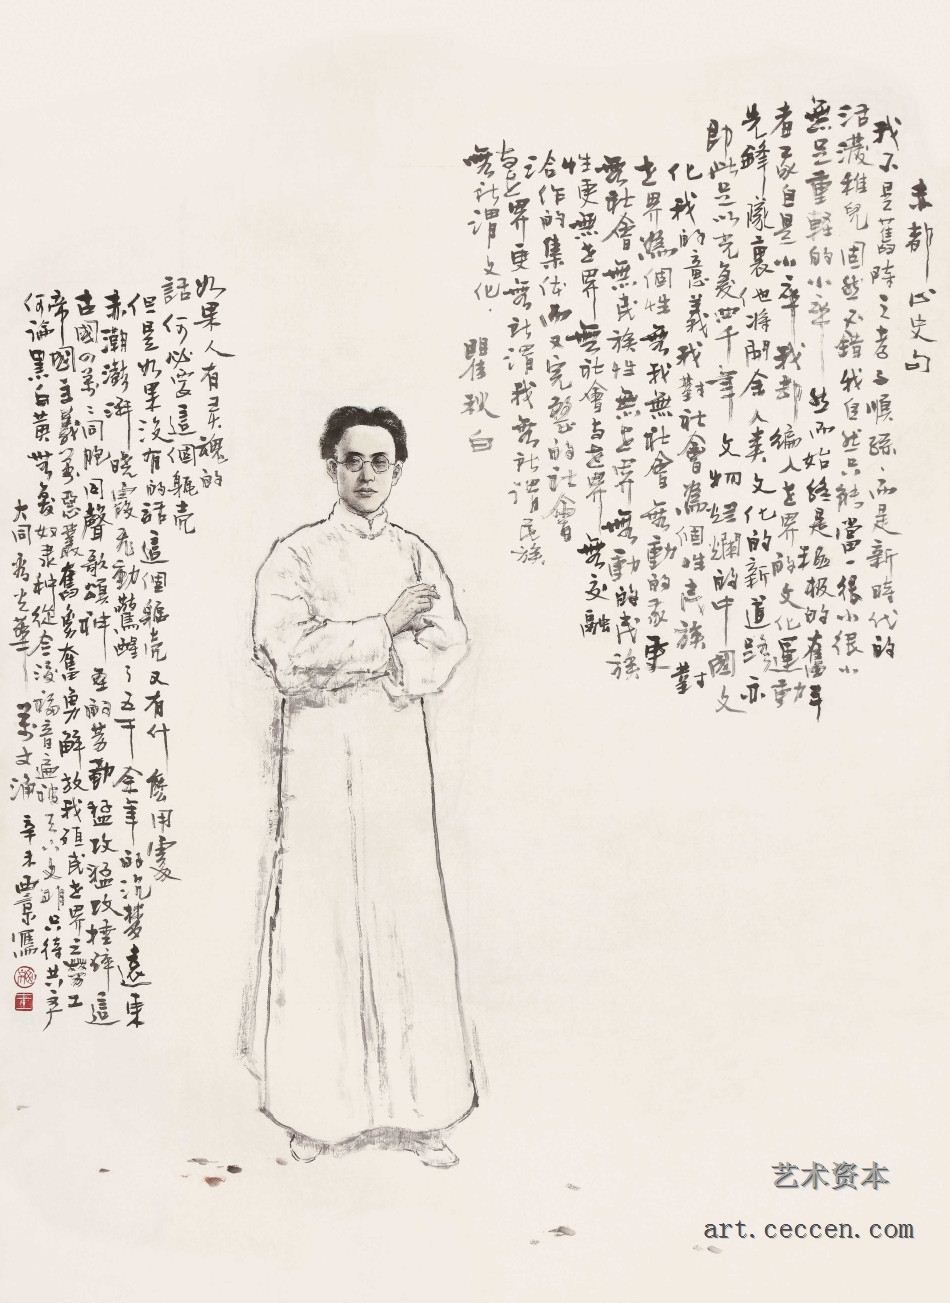 赤都心史句
我不是舊時之孝子順孫、而是新時代的
活潑稚兒 固然不錯 我自然只能當一很小很小
無足重輕的小卒 然而始終是積極的奮鬥
者 我自是小卒 我卻編入世界的文化運動
先鋒隊裏 他將開全人類文化的新道路 亦
即此足以光復四千年文物燦爛的中國文
化 我的意義 我對社會為個性 民族對
世界為個性 無我無社會 無動的我更
無社會 無民族性無世界 無動的民族
性更無世界 無社會與世界 無交融
洽作的集体而又完整的社會
與世界更無所謂我 無所謂民族
無所謂文化.
瞿秋白
如果人有灵魂的
話 何必要這個軀壳
但是如果没有的話 這個軀壳又有什麼用處
赤潮澎湃 晓霞飛動 驚醒了五千余年的沉梦 遠東
古國四萬萬同胞 同聲歌頌神聖的勞動 猛攻猛攻 捶碎這
帝國主義萬惡叢 奮勇奮勇 解放我殖民世界之勞工
何論黑白黄 無復奴隶种 從今後 福音遍被 天下文明 只待共产
大同 看光華萬丈湧 辛未西京
艺术资本
art.ceccen.com